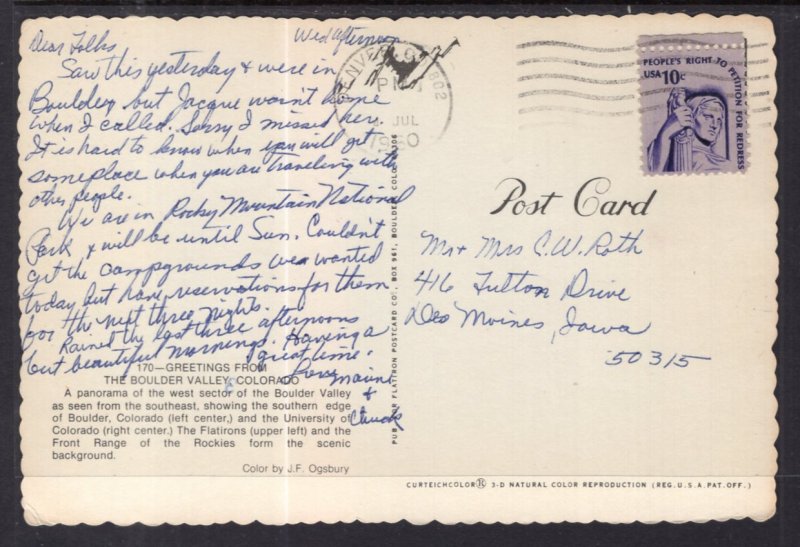 Dear Folks Wed afternoon
Saw this yesterday & were in
Boulder, but Jacque wasn't home
when I called. Sorry I missed her.
It is hard to know when you will get
someplace when you are traveling with
other people.
We are in Rocky Mountain National
Park & will be until Sun. Couldn't
get the campgrounds we wanted
today but have reservations for them
for the next three nights.
Rained the last three afternoons
but beautiful mornings. Having a
great time.
Love
&
Chuck
170—GREETINGS FROM
THE BOULDER VALLEY, COLORADO
A panorama of the west sector of the Boulder Valley
as seen from the southeast, showing the southern edge
of Boulder, Colorado (left center,) and the University of
Colorado (right center.) The Flatirons (upper left) and the
Front Range of the Rockies form the scenic
background.
Color by J.F. Ogsbury
PUB. FLATIRON POSTCARD CO., BOX 961, BOULDER, COLO.
DENVER, CO 802
PM
JUL
1980
PEOPLE'S RIGHT TO PETITION FOR REDRESS
USA 10c
Post Card
Mr & Mrs C.W. Roth
416 Fulton Drive
Des Moines, Iowa
50315
CURTEICHCOLOR® 3-D NATURAL COLOR REPRODUCTION (REG. U.S.A. PAT. OFF.)